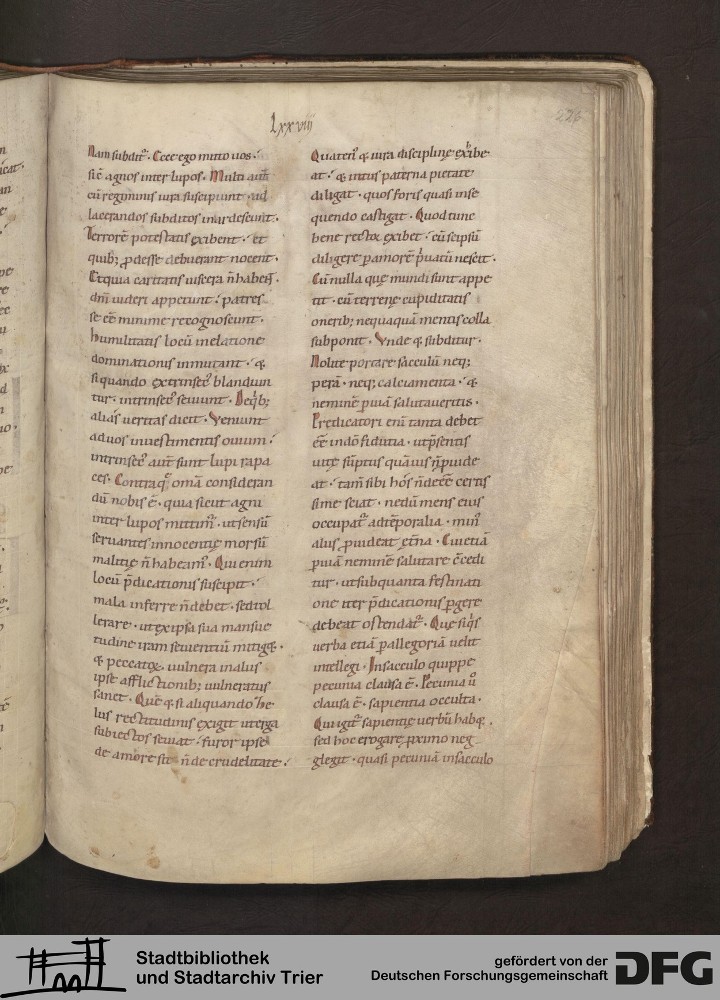 Lxxviii
226
Nam subdit᷑. Ecce ego mitto uos.
sic̄ agnos inter lupos. Multi aut̄
cū regiminis iura suscipiunt. ad
lacerandos subditos inardescunt.
Terrorē potestatis exibent. et
quib; ꝓdesse debuerant nocent.
Et quia caritatis uiscera n̄ habent.
dn̄i uideri appetunt. patres
se eē minime recognoscunt.
humilitatis locū in elatione
dominationis inmutant. &
si quando extrinsec᷒ blandiun
tur. intrinsec᷒ seuiunt. De qͥb;
alias ueritas dicit. Veniunt
ad uos in uestimentis ouium.
intrinsec᷒ aut̄ sunt lupi rapa
ces. Contra quę om̄a consideran
dū nobis ē. quia sicut agni
inter lupos mittim᷒. ut sensū
seruantes innocentię morsū
malitię n̄ habeam᷒. Qui enim
locū p̄dicationis suscipit.
mala inferre n̄ debet. sed tol
lerare. ut ex ipsa sua mansue
tudine iram seuientiū mitiget.
& peccatoꝝ uulnera in aliis
ipse afflictionib; uulneratus
sanet. Quē & si aliquando ze
lus rectitudinis exigit ut erga
subiectos seuiat. furor ipse
de amore sit n̄ de crudelitate.
Quaten᷒ & iura disciplinę exͥbe
at. & intus paterna pietate
diligat. quos foris quasi inse
quendo castigat. Quod tunc
bene rector exibet. cū se ipsū
diligere p̱ amorē pͥuatū nescit.
Cū nulla quę mundi sunt appe
tit. cū terrenę cupiditatis
onerib; nequaquā mentis colla
subponit. Vnde & subditur.
Nolite portare sacculū neq;
perā. neq; calciamenta. &
neminē p̱ uiā salutaueritis.
Predicatori enī tanta debet
eē in dō fiducia. ut p̄sentis
uitę sūptus quāuis n̄ p̱uide
at. tam̄ sibi hos n̄ deeē certis
sime sciat. ne dū mens eius
occupat᷑ ad tēporalia. min᷒
aliis ꝓuideat ęt̄na. Cui etiā
p̱ uiā neminē salutare c̄cedi
tur. ut sub quanta festinati
one iter p̄dicationis p̱gere
debeat ostendat᷑. Que si qͥs
uerba etiā p̱ allegoriā uelit
intellegi. In sacculo quippe
pecunia clausa ē. Pecunia u̅
clausa ē. sapientia occulta.
Qui igit᷑ sapientię uerbū habet.
sed hoc erogare ꝓximo neg
glegit. quasi pecuniā in sacculo
Stadtbibliothek
und Stadtarchiv Trier
gefördert von der
Deutschen Forschungsgemeinschaft
DFG